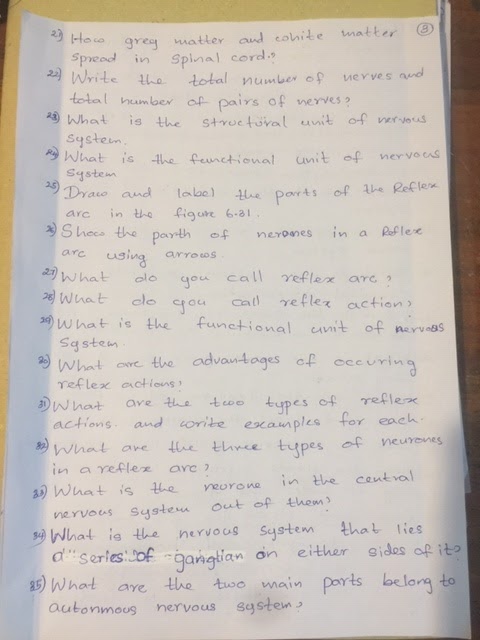 3
21) How grey matter and white matter
spread in spinal cord?
22) Write the total number of nerves and
total number of pairs of nerves?
23) What is the structural unit of nervous
system.
24) What is the functional unit of nervous
system
25) Draw and label the parts of the Reflex
arc in the figure 6.31.
26) Show the parth of nerones in a Reflex
arc using arrows.
27) What do you call reflex arc?
28) What do you call reflex action?
29) What is the functional unit of nervous
system.
30) What are the advantages of occuring
reflex actions?
31) What are the two types of reflex
actions. and write examples for each.
32) What are the three types of neurones
in a reflex arc?
33) What is the neurone in the central
nervous system out of them?
34) What is the nervous system that lies
a series of ganglian on either sides of it?
35) What are the two main parts belong to
autonmous nervous system?